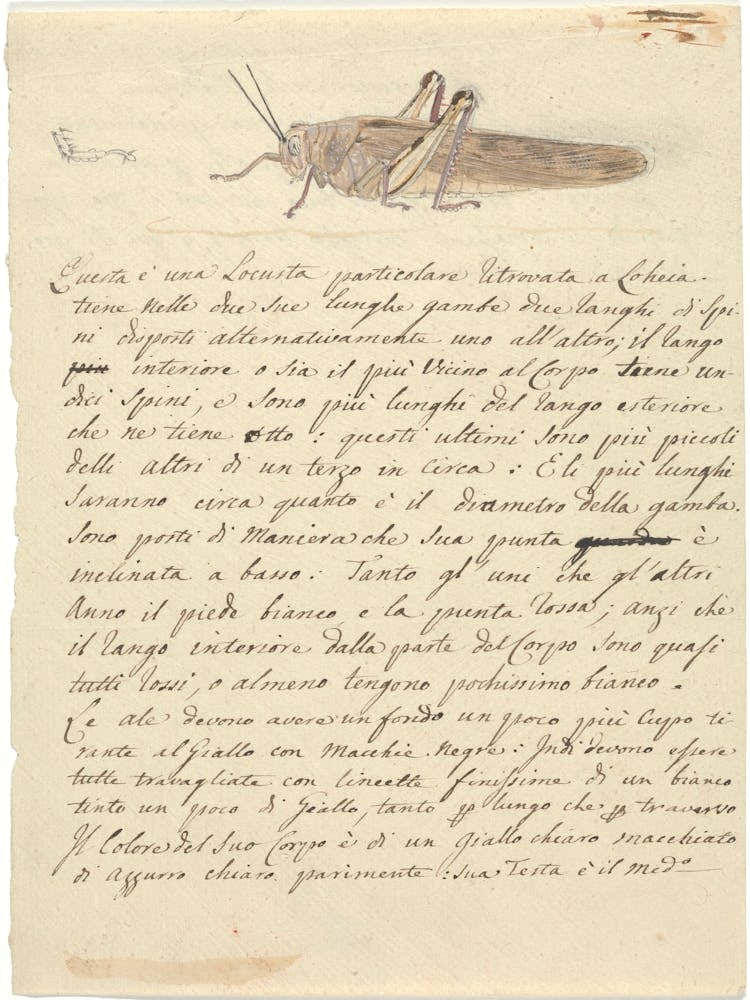 Questa è una Locusta particolare ritrovata a Loheia.
tiene nelle due sue lunghe gambe due ranghi di Spi-
ni disposti alternativamente uno all'altro; il rango
più interiore o sia il più Vicino al Corpo tiene un-
dici Spini, e sono più lunghi del rango esteriore
che ne tiene otto: questi ultimi sono più piccoli
delli altri di un terzo in Circa: E li più lunghi
saranno circa quanto è il diametro della gamba.
sono posti di Maniera che sua punta è
inclinata a basso: Tanto gl'uni che gl'altri
Anno il piede bianco e la punta rossa; anzi chè
il rango interiore dalla parte del Corpo sono quasi
tutti rossi, o almeno tengono pochissimo bianco.
Le ale devono avere un fondo un poco più Cupo ti-
rante al Giallo con Macchie Negre: Indi devono essere
tutte travagliate con lineette finissime di un bianco
tinto un poco di Giallo, tanto p lungo che p traverso
Il Colore del suo Corpo è di un Giallo chiaro macchiato
di Azzurro chiaro parimente: sua Testa è il medo